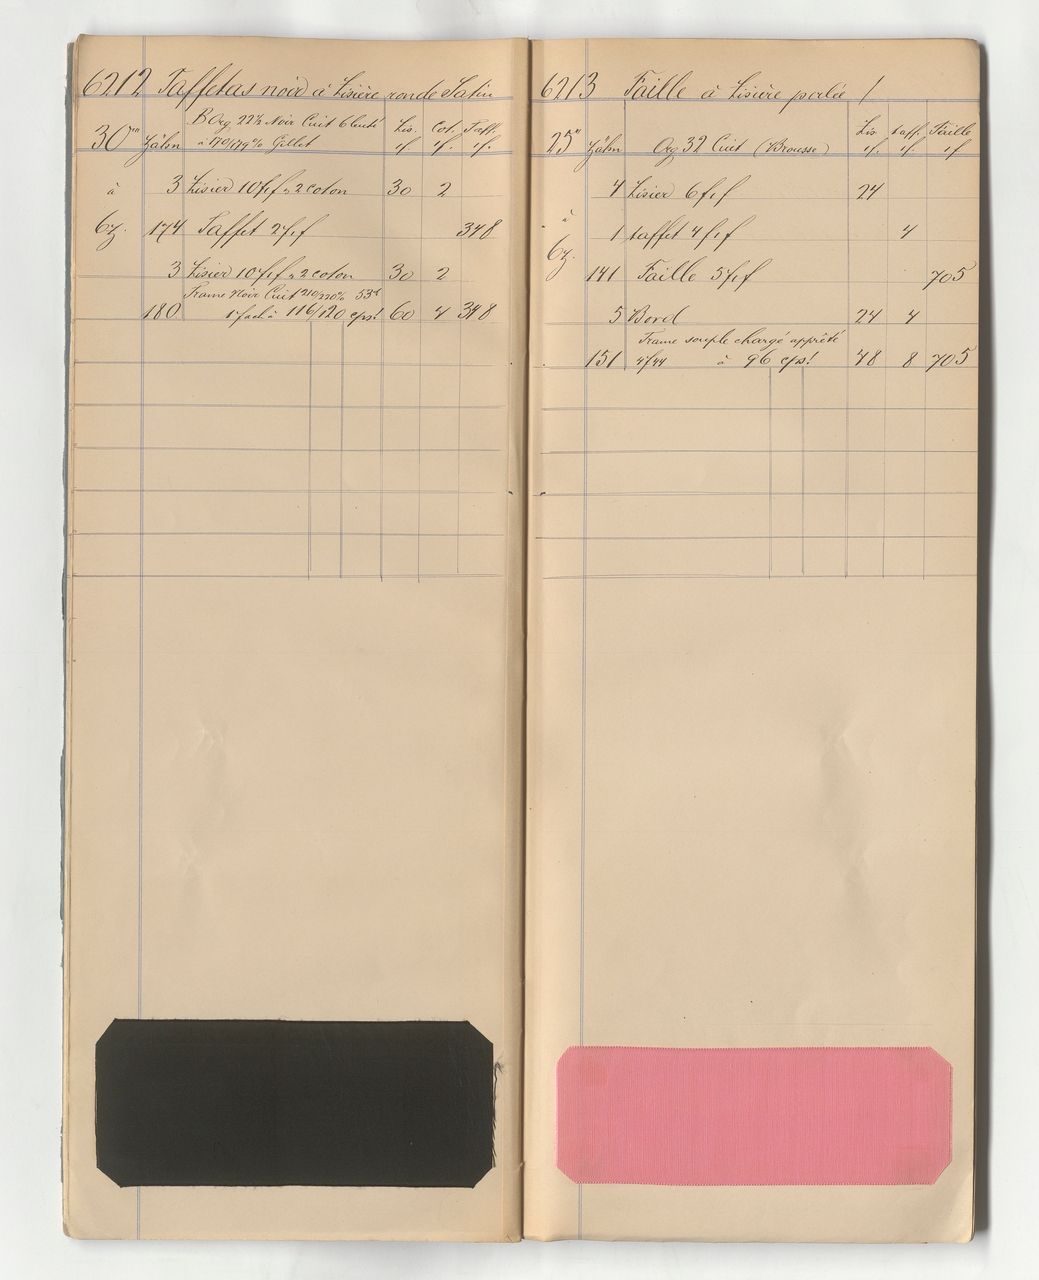 6212 Taffetas noir à Lisière ronde Satin
B Org 22½ Noir Cuit
30" Zähn à 170/179% Gillet Lis. if Cot. if. Taff. if.
à 3 Lisier 10f,f 2 coton 30 2
6z. 174 Taffet 2f,f 348
3 Lisier 10f,f 2 coton 30 2
Trame Noir Cuit 210/220% 53d
180 1 fach à 116/120 cps! 60 4 348
6213 Faille à Lisière perlée !
25" Zähn Org 32 Cuit (Brousse) Lis if. taff. if Faille if
4 Lisier 6f,f 24
à
1 taffet 4f,f 4
6z.
141 Faille 5f,f 705
5 Bord 24 4
Trame souple chargé apprêté
151 4f/44 à 96 cps! 48 8 705